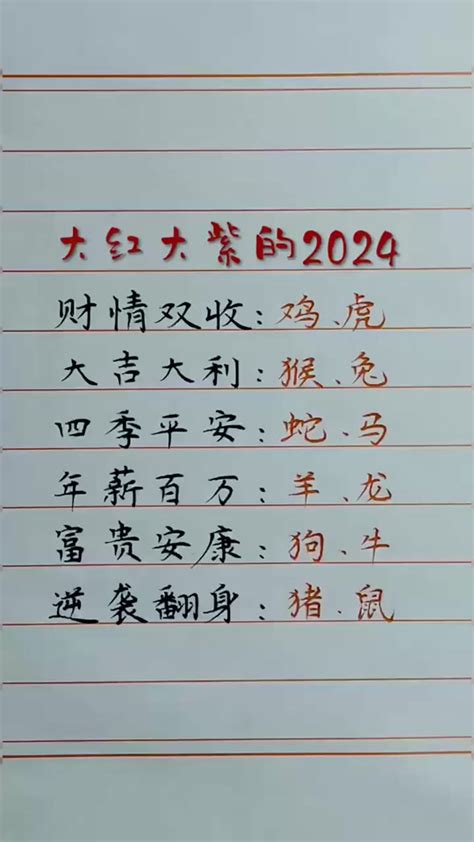 大红大紫的2024
财情双收:鸡、虎
大吉大利:猴、兔
四季平安:蛇、马
年薪百万:羊、龙
富贵安康:狗、牛
逆袭翻身:猪、鼠